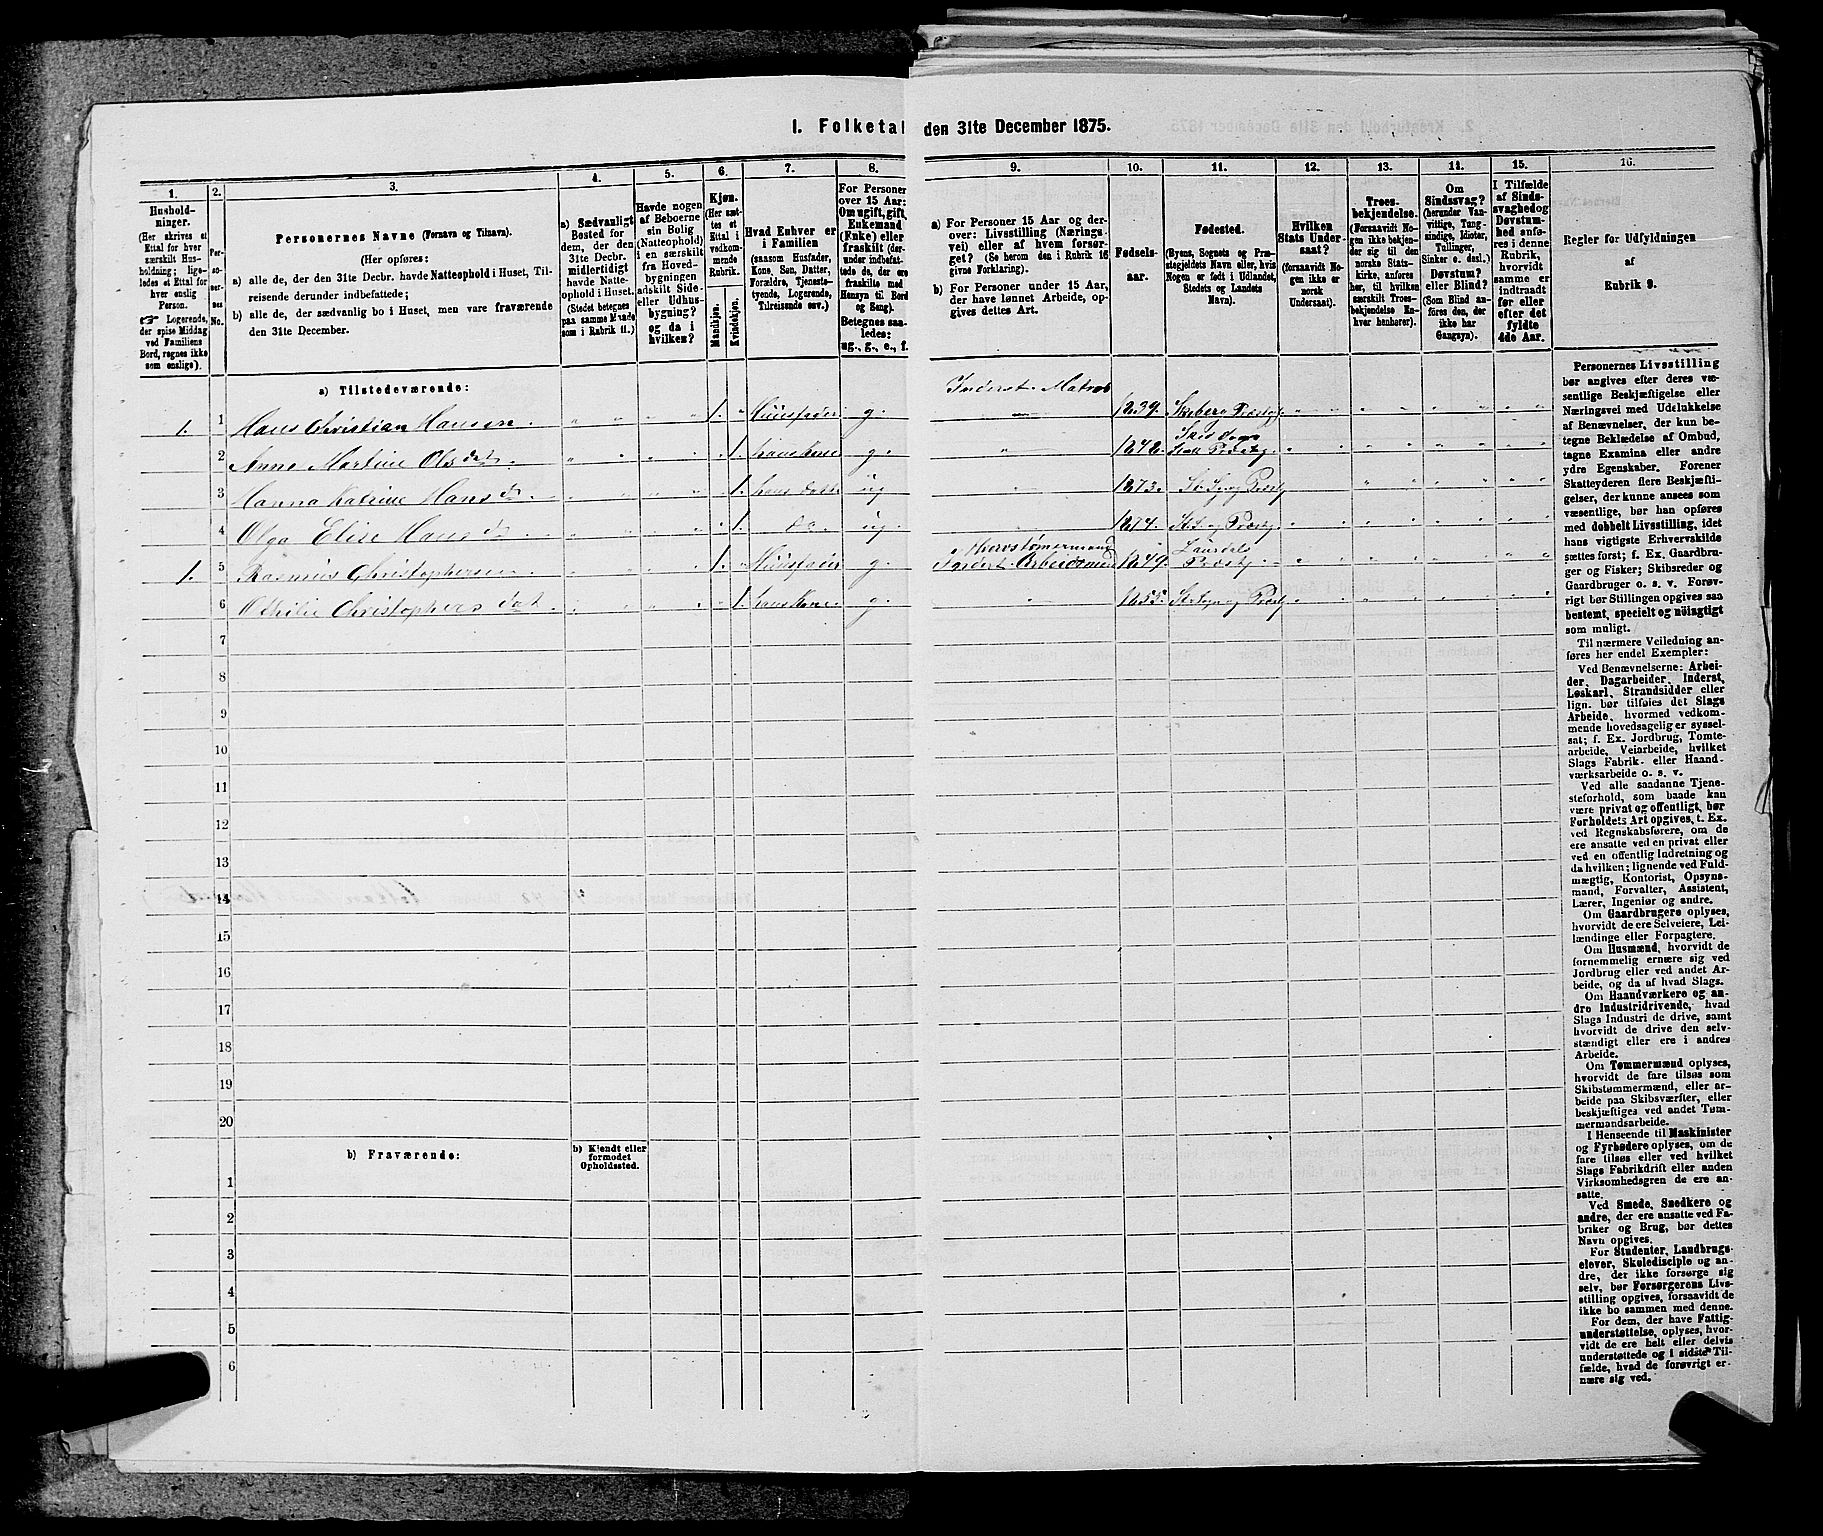 I. Folketal den 31te December 1875.
1. 2. 3. 4. 5. 6. 7. 8. 9. 10. 11. 12. 13. 14. 15. 16.
Hushold-
ninger.
(Her skrives et
Ettal for hver
særskilt Hus-
holdning; lige-
ledes et Ettal for
hver enslig
Person.
☞ Logerende,
der spise Middag
ved Familiens
Bord, regnes ikke
som enslige).
Per-
so-
ner-
nes
No.
Personernes Navne (Fornavn og Tilnavn).
(Her opføres:
a) alle de, der den 31te Decbr. havde Natteophold i Huset, Til-
reisende derunder indbefattede;
b) alle de, der sædvanlig bo i Huset, men vare fraværende
den 31te December.
a) Sædvanligt
Bosted for
dem, der den
31te Decbr.
midlertidigt
havde Natte-
ophold i Huset.
(Stedet betegnes
paa samme Maade
som i Rubrik 11.)
Havde nogen
af Beboerne
sin Bolig
(Natteophold)
i en særskilt
fra Hoved-
bygningen
adskilt Side-
eller Udhus-
bygning?
og da i
hvilken?
Kjøn.
(Her sæt-
tes et
Ettal i
vedkom-
mende
Rubrik.
Mandkjøn.
Kvindekjøn.
Hvad Enhver er
i Familien
(saasom Husfader,
Kone, Søn, Datter,
Forældre, Tjeneste-
tyende, Logerende,
Tilreisende osv.)
For Personer
over 15 Aar:
Om ugift, gift,
Enkemand
(Enke) eller
fraskilt (der-
under indbefat-
tede de, der ere
fraskilte med
Hensyn til Bord
og Seng).
Betegnes saa-
ledes:
ug., g., e., f.
a) For Personer 15 Aar og der-
over: Livsstilling (Nærings-
vei) eller af hvem forsør-
get? (Se herom den i Rubrik 16
givne Forklaring).
b) For Personer under 15 Aar,
der have lønnet Arbeide, op-
gives dettes Art.
Fødsels-
aar.
Fødested.
(Byens, Sognets og Præ-
stegjeldets Navn eller, hvis
Nogen er født i Udlandet,
Stedets og Landets
Navn).
Hvilken
Stats Under-
saat?
(forsaavidt No-
gen ikke er
norsk
Undersaat).
Troes-
bekjendelse.
(Forsaavidt No-
gen ikke bekjen-
der sig til den
norske Stats-
kirke, anføres
her, til hvilken
særskilt Troes-
bekjendelse En-
hver henhører).
Om
Sindssvag?
(herunder Van-
vittige, Tung-
sindige, Idioter,
Tullinger,
Sinker o. desl.)
Døvstum?
eller Blind?
(Som Blind an-
føres den, der
ikke har
Gangsyn).
I Tilfælde
af Sinds-
svaghed og
Døvstum-
hed anfø-
res i denne
Rubrik,
hvorvidt
samme er
indtraadt
før eller
efter det
fyldte
4de Aar.
Regler for Udfyldningen
af
Rubrik 9.
a) Tilstedeværende:
1. 1 Hans Christian Hansen 1. Huusfader g. Inderst. Matros 1839.
2 Anne Martine Olsdat. 1. hans Kone g.
3 Hanna Katrine Hans d. 1. hans datt ug 1873.
4 Olga Elise Hans d. 1. do ug. 1874.
1. 5 Rasmus Christophersen 1. Huusfader g. Inderst. Arbeidsmand 1849.
6 Othilie Christophers dat 1. hans Kone g. 1855.
7
8
9
10
11
12
13
14
15
16
17
18
19
20
b) Fraværende:
b) Kjendt eller
formodet
Opholdssted.
1
2
3
4
5
6
Personernes Livsstilling
bør angives efter deres væ-
sentlige Beskjæftigelse eller
Næringsvei med Udelukkelse
af Benævnelser, der kun be-
tegne Beklædelse af Ombud,
tagne Examina eller andre
ydre Egenskaber. Forener
Skatteyderen flere Beskjæfti-
gelser, der kunne ansees som
væsentlige, bør han opføres
med dobbelt Livsstilling, idet
hans vigtigste Erhvervskilde
sættes først; f. Ex. Gaardbru-
ger og Fisker; Skibsreder og
Gaardbruger o. s. v. Forøv-
rigt bør Stillingen opgives saa
bestemt, specielt og nøiagtigt
som muligt.
Til nærmere Veiledning an-
føres her endel Exempler:
Ved Benævnelserne: Arbei-
der, Dagarbeider, Inderst,
Løskarl, Strandsidder eller
lign. bør tilføies det Slags
Arbeide, hvormed vedkom-
mende hovedsagelig er syssel-
sat; f. Ex. Jordbrug, Tomte-
arbeide, Veiarbeide, hvilket
Slags Fabrik- eller Haand-
værksarbeide o. s. v.
Ved alle saadanne Tjene-
steforhold, som baade kan
være privat og offentligt, bør
Forholdets Art opgives, t. Ex.
ved Regnskabsførere, om de
ere ansatte ved en privat eller
ved en offentlig Indretning og
da hvilken; lignende ved Fuld-
mægtig, Kontorist, Opsyns-
mand, Forvalter, Assistent,
Lærer, Ingeniør og andre.
Om Gaardbrugere oplyses,
hvorvidt de ere Selveiere, Lei-
lændinge eller Forpagtere.
Om Husmænd, hvorvidt de
fornemmelig ernære sig ved
Jordbrug eller ved andet Ar-
beide, og da af hvad Slags.
Om Haandværkere og an-
dre Industridrivende, hvad
Slags Industri de drive, samt
hvorvidt de drive den selv-
stændigt eller ere i andres
Arbeide.
Om Tømmermænd oplyses,
hvorvidt de fare tilsøs som
Skibstømmermænd, eller ar-
beide paa Skibsværfter, eller
beskjæftiges ved andet Tøm-
mermandsarbeide.
I Henseende til Maskinister
og Fyrbødere oplyses, om de
fare tilsøs eller ved hvilket
Slags Fabrikdrift eller anden
Virksomhedsgren de ere an-
satte.
Ved Smede, Snedkere og
andre, der ere ansatte ved Fa-
briker og Brug, bør dettes
Navn opgives.
For Studenter, Landbrugs-
elever, Skoledisciple og an-
dre, der ikke forsørge sig
selv, bør Forsørgerens Livs-
stilling opgives, forsaavidt de
ikke bo sammen med denne.
For dem, der have Fattig-
understøttelse, oplyses, hvor-
vidt de ere helt eller delvis
understøttede og i sidste Til-
fælde, hvad de forøvrigt er-
nære sig ved.